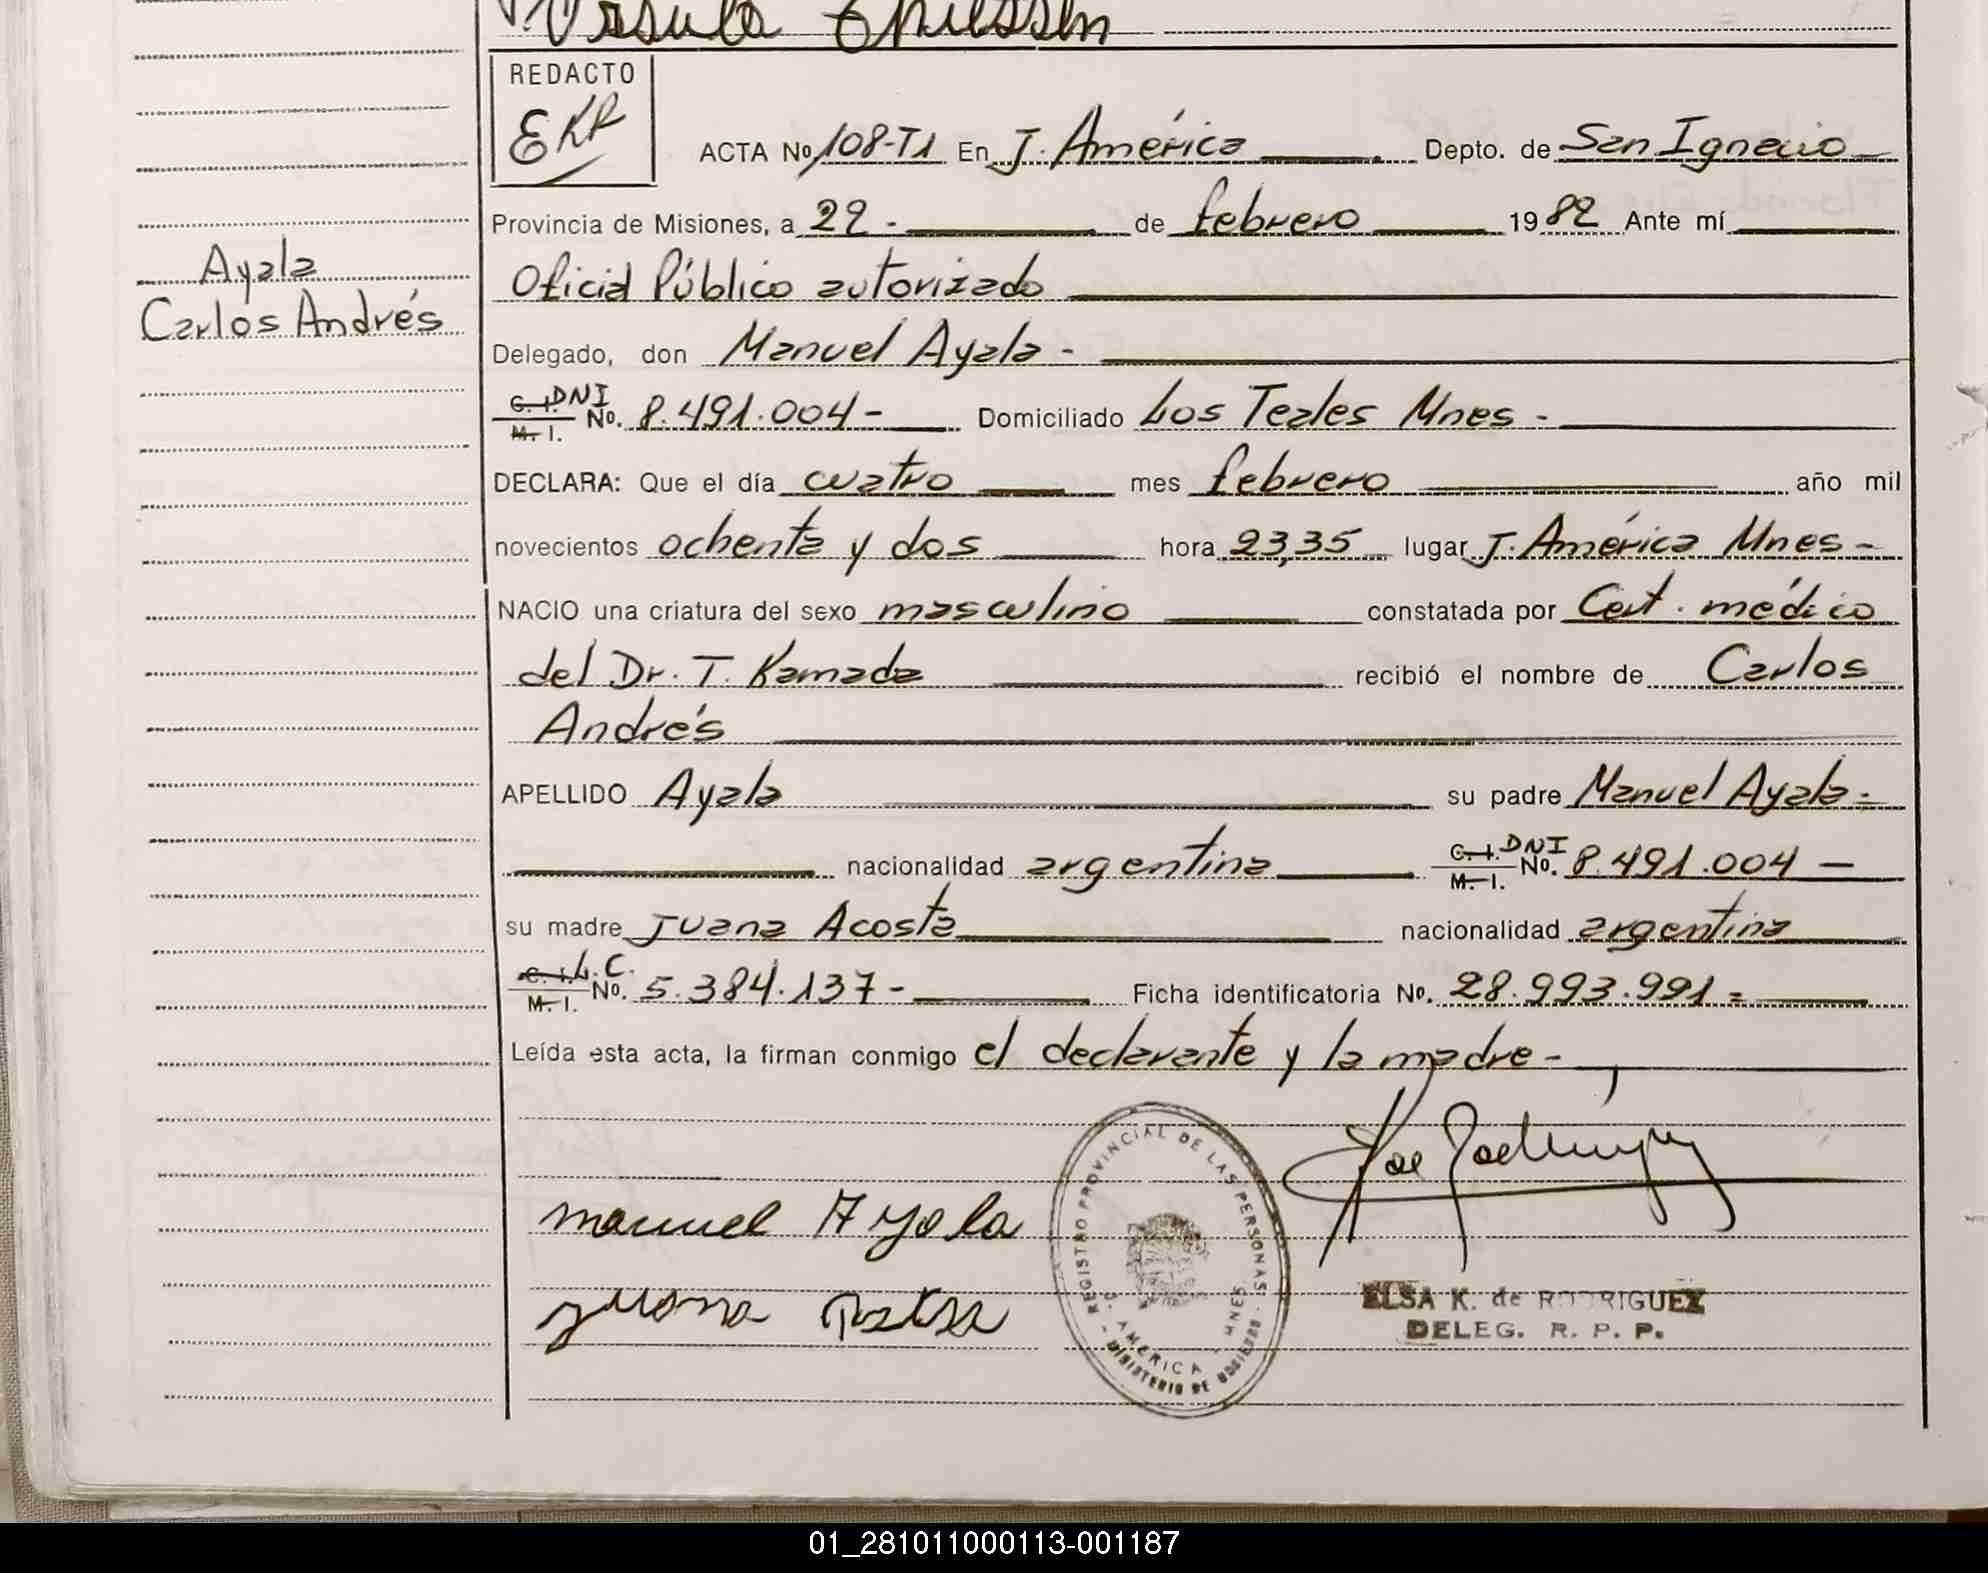 Ursula
REDACTO
EKR
ACTA No 108-T1 En J. América Depto. de San Ignacio
Provincia de Misiones, a 22 - de febrero 1982 Ante mí
Oficial Público autorizado
Ayala
Carlos Andrés
Delegado, don Manuel Ayala -
C. I. DNI
M. I. No. 8.491.004 - Domiciliado Los Teales Mnes -
DECLARA: Que el día cuatro mes febrero año mil
novecientos ochenta y dos hora 23,35 lugar J. América Mnes -
NACIO una criatura del sexo masculino constatada por Cert. médico
del Dr. T. Kamada recibió el nombre de Carlos
Andrés
APELLIDO Ayala su padre Manuel Ayala -
nacionalidad argentina C. I. DNI M. I. No. 8.491.004 -
su madre Juana Acosta nacionalidad argentina
C. I. L.C.
M. I. No. 5.384.137 - Ficha identificatoria No. 28.993.991 -
Leída esta acta, la firman conmigo el declarante y la madre -
manuel Ayala
juana
REGISTRO PROVINCIAL DE LAS PERSONAS
J. AMERICA - MNES.
MINISTERIO DE GOBIERNO
ELSA K. de RODRIGUEZ
DELEG. R. P. P.
01_281011000113-001187